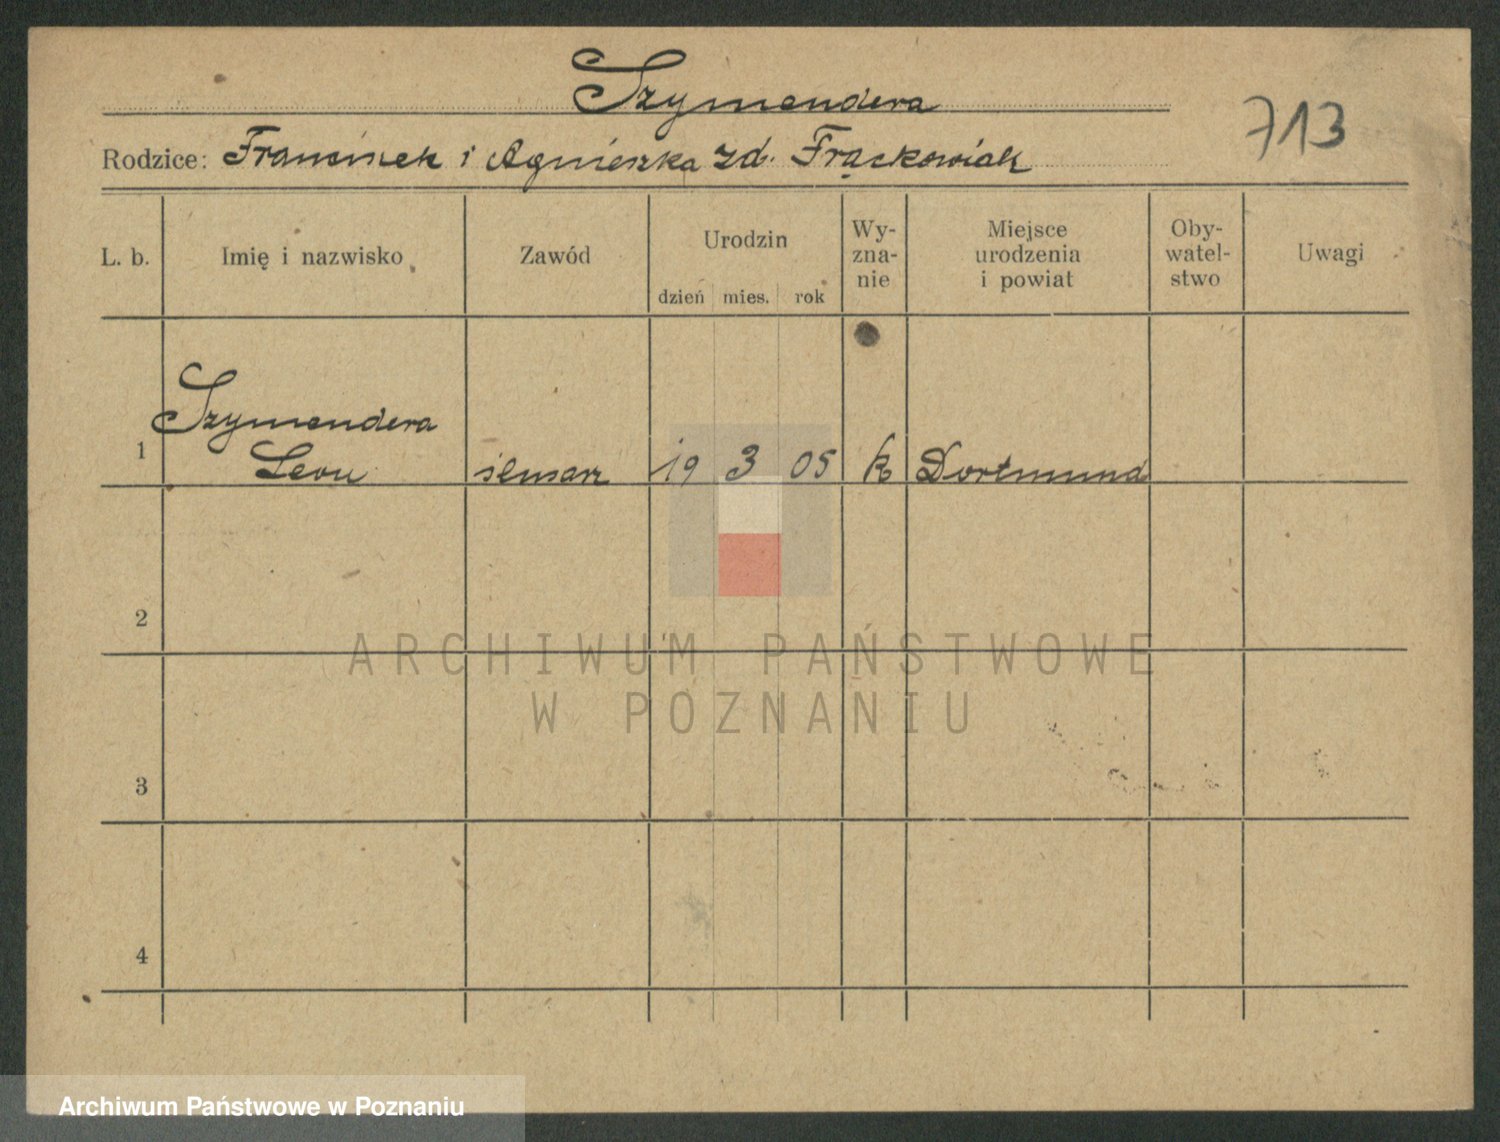 Szymendera
713
Rodzice: Franciszek i Agnieszka zd. Frąckowiak
L. b. Imię i nazwisko Zawód Urodzin dzień mies. rok Wy-zna-nie Miejsce urodzenia i powiat Oby-watel-stwo Uwagi
Szymendera
1 Leon ślusarz 19 3 05 k Dortmund
2
ARCHIWUM PAŃSTWOWE
W POZNANIU
3
4
Archiwum Państwowe w Poznaniu